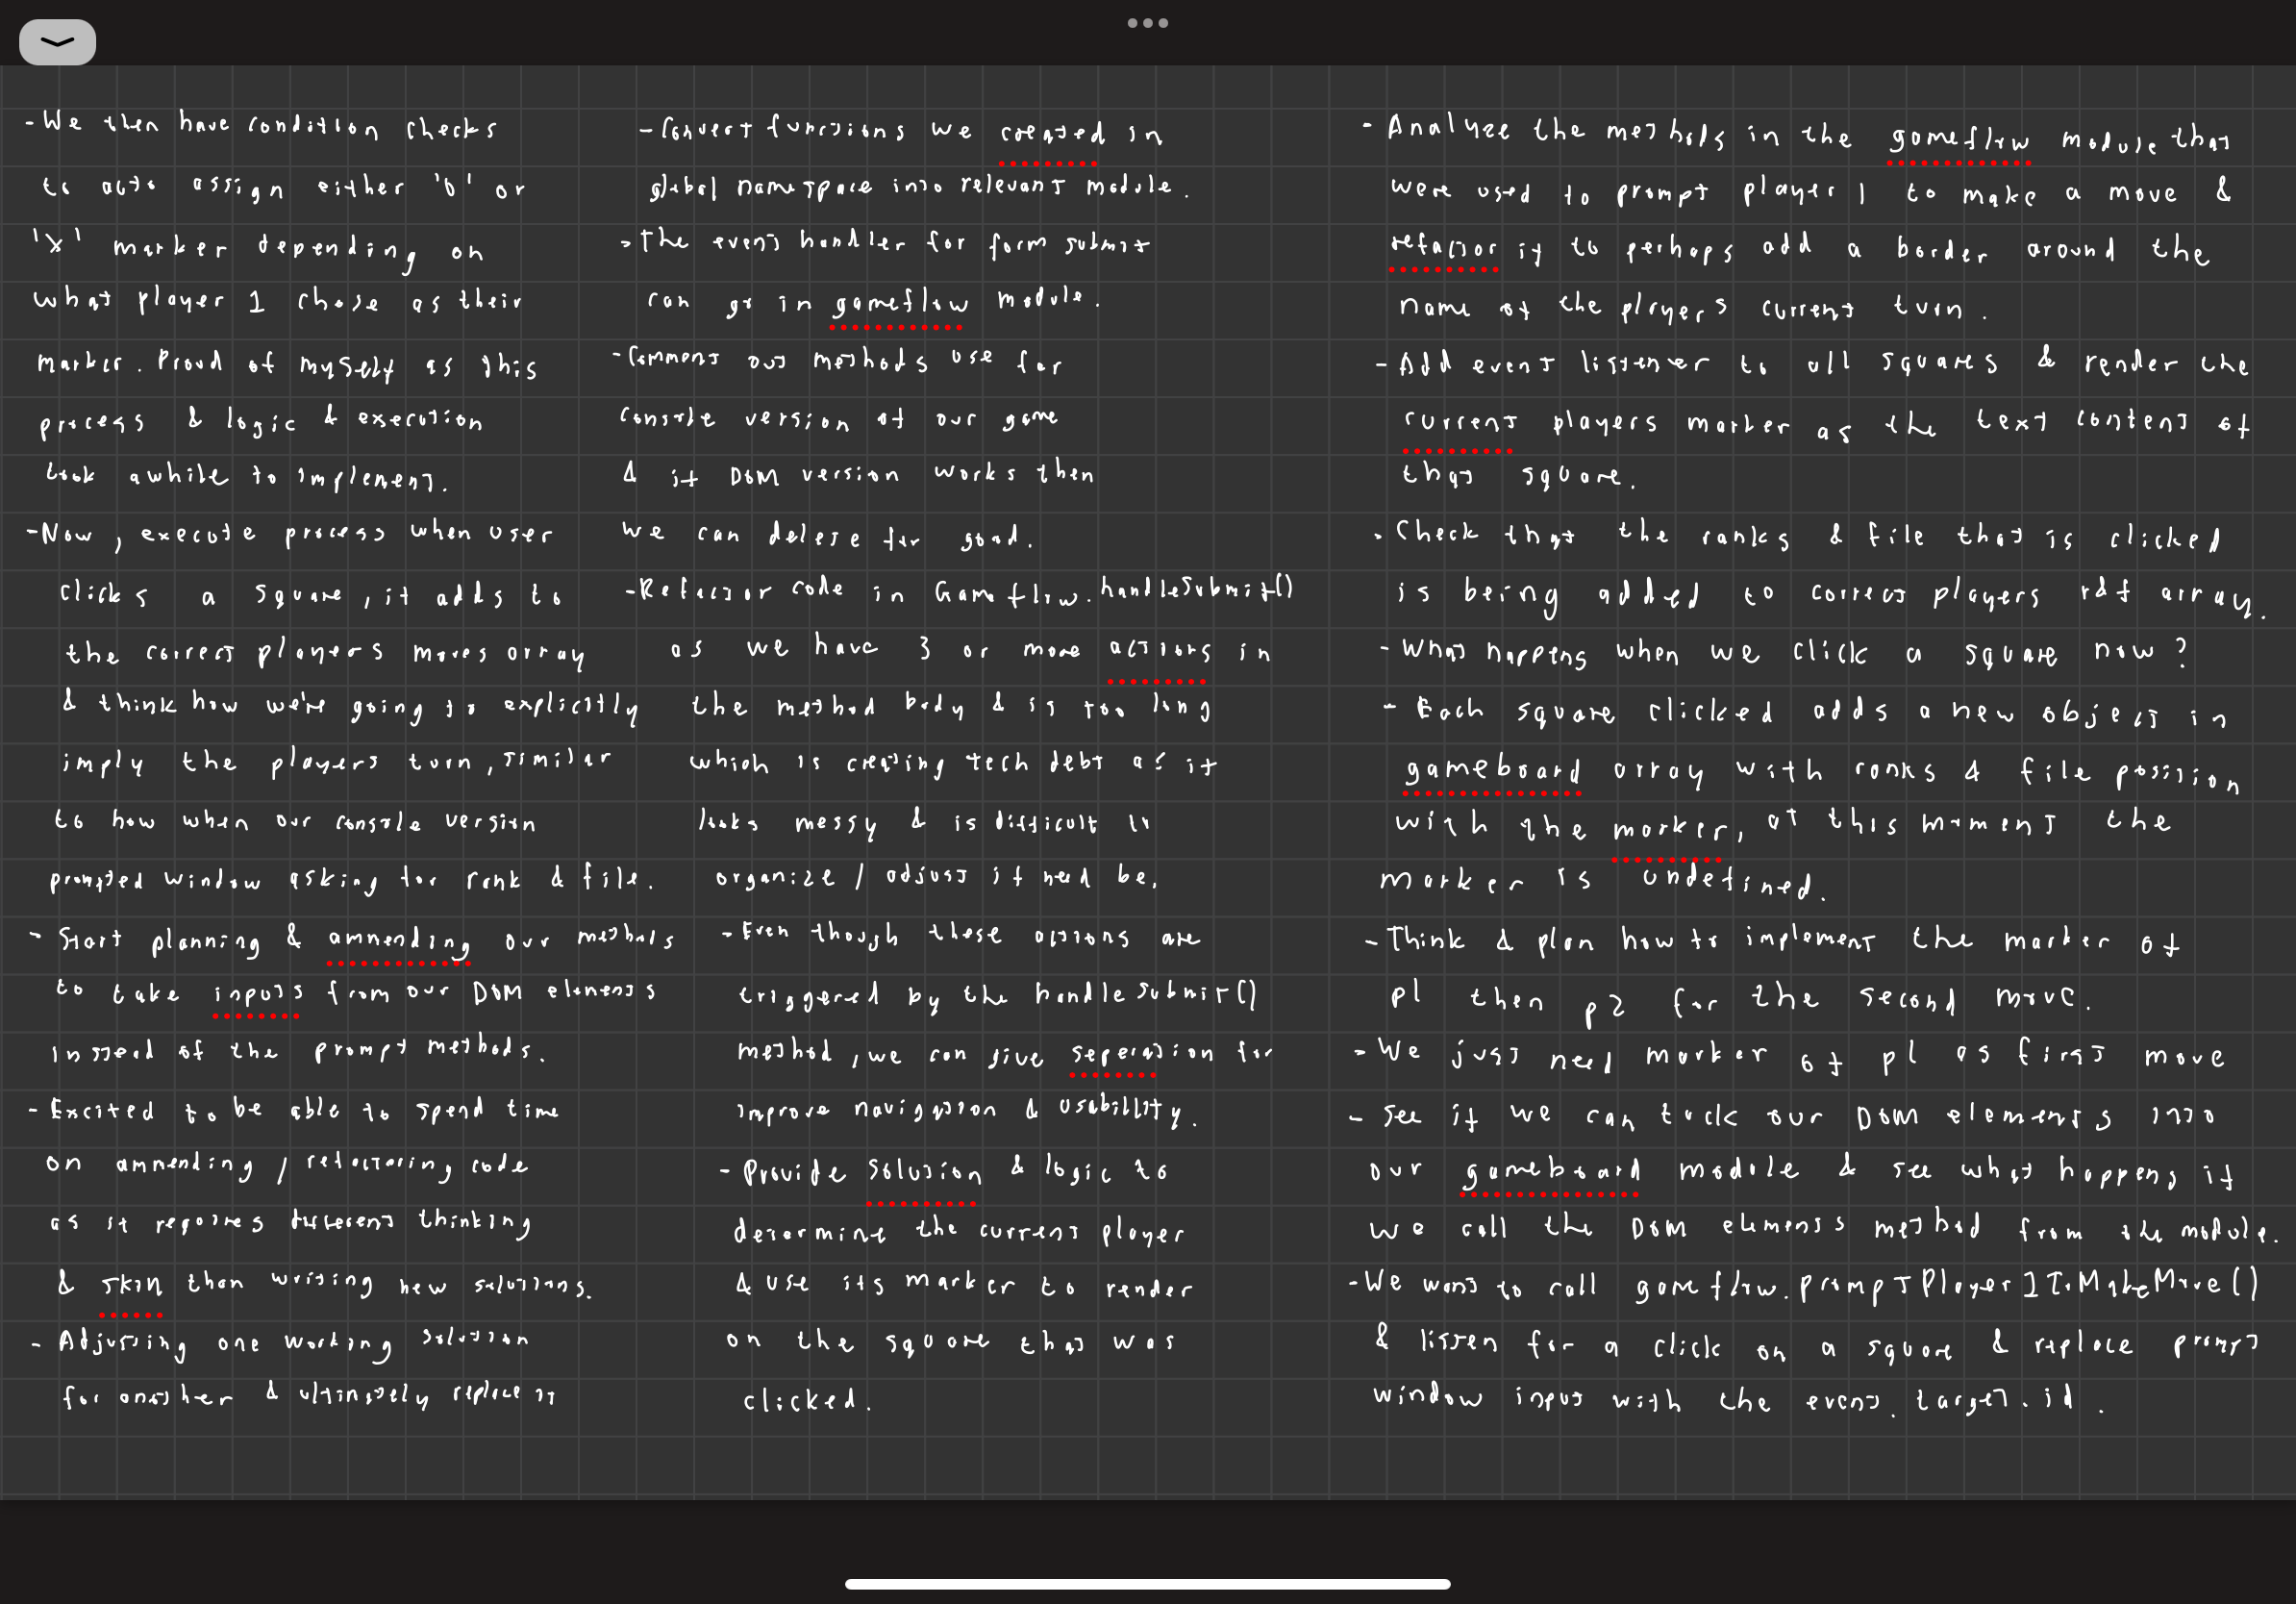 - We then have condition checks
to auto assign either 'O' or
'X' marker depending on
what player 1 chose as their
marker. Proud of myself as this
process & logic & execution
took awhile to implement.
- Now, execute process when user
clicks a square, it adds to
the correct players moves array
& think how we're going to explicitly
imply the players turn, similar
to how when our console version
prompted window asking for rank & file.
- Start planning & amnending our methods
to take inputs from our DOM elements
instead of the prompt methods.
- Excited to be able to spend time
on amnending / refactoring code
as it requires different thinking
& skin than writing new solutions.
- Adjusting one working solution
for another & ultimately replace it
- Convert functions we created in
global namespace into relevant module.
- The event handler for form submit
can go in gameflow module.
- Comment out methods use for
console version of our game
& if DOM version works then
we can delete for good.
- Refactor code in Gameflow.handleSubmit()
as we have 3 or more actions in
the method body & is too long
which is creating tech debt as it
looks messy & is difficult to
organize / adjust if need be.
- Even though these actions are
triggered by the handleSubmit()
method, we can give seperation for
improve navigation & usability.
- Provide solution & logic to
determine the current player
& use its marker to render
on the square that was
clicked.
- Analyze the methods in the gameflow module that
were used to prompt player 1 to make a move &
refactor it to perhaps add a border around the
name of the players current turn.
- Add event listener to all squares & render the
current players marker as the text content of
that square.
- Check that the ranks & file that is clicked
is being added to correct players r&f array.
- What happens when we click a square now?
- Each square clicked adds a new object in
gameboard array with ranks & file position
with the marker, at this moment the
marker is undefined.
- Think & plan how to implement the marker of
p1 then p2 for the second move.
- We just need marker of p1 as first move
- See if we can tuck our DOM elements into
our gameboard module & see what happens if
we call the DOM elements method from the module.
- We want to call gameflow.promptPlayer1ToMakeMove()
& listen for a click on a square & replace prompt
window input with the event.target.id.